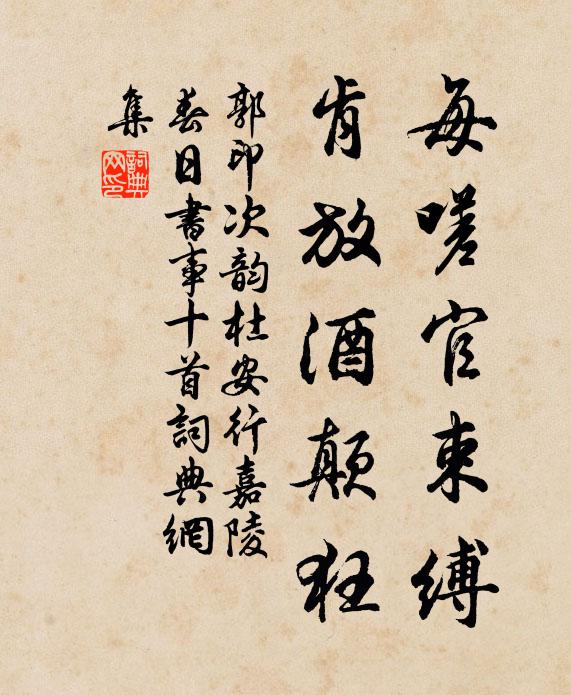 每嗟官束缚
肯放酒颠狂
郭印次韵杜安行嘉陵
春日書事十首詞典網
集
詞典网印